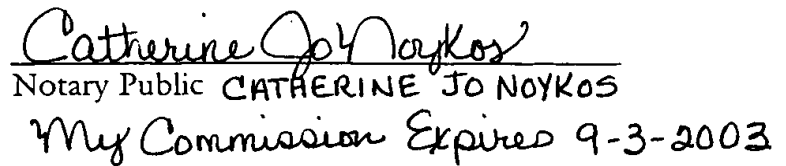 Catherine Jo Noykos
Notary Public CATHERINE JO NOYKOS
My Commission Expires 9-3-2003